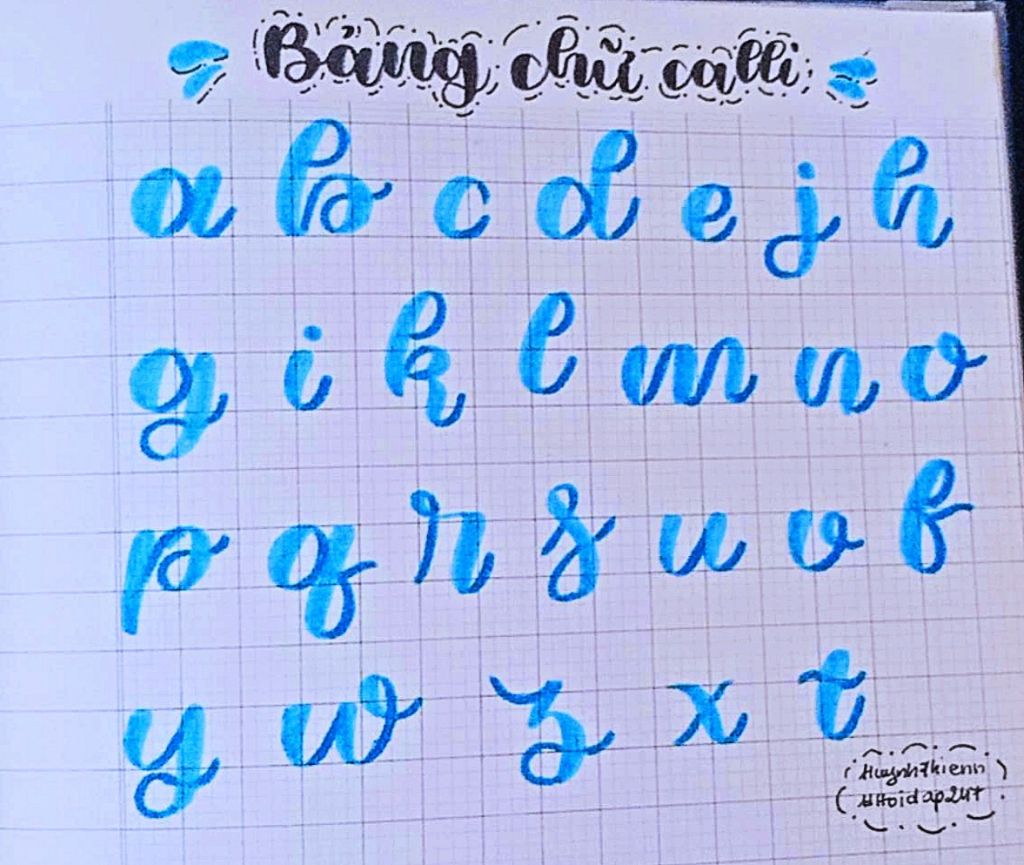 Bảng chữ calli
a b c d e j h
g i k l m n o
p q r s u v f
y w z x t
Huynh7kienn
#Hoidap247